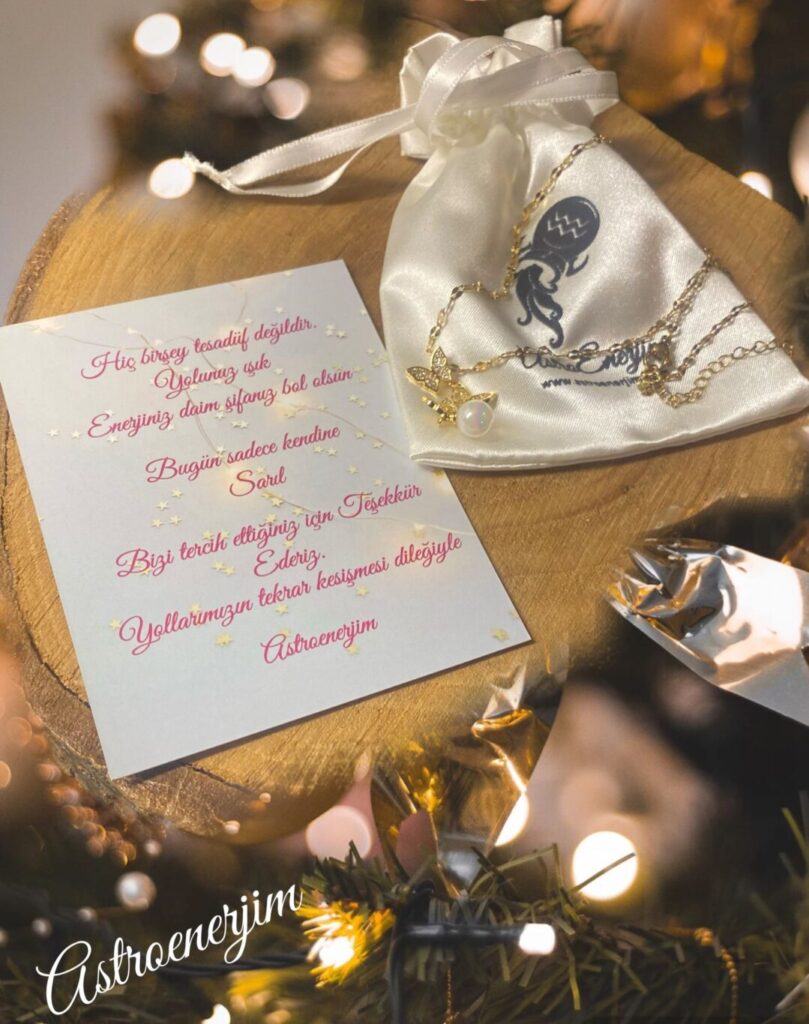 Hiç birşey tesadüf değildir.
Yolunuz ışık
Enerjiniz daim şifanız bol olsun
Bugün sadece kendine
Sarıl
Bizi tercih ettiğiniz için Teşekkür
Ederiz.
Yollarımızın tekrar kesişmesi dileğiyle
Astroenerjim
www
Astroenerjim